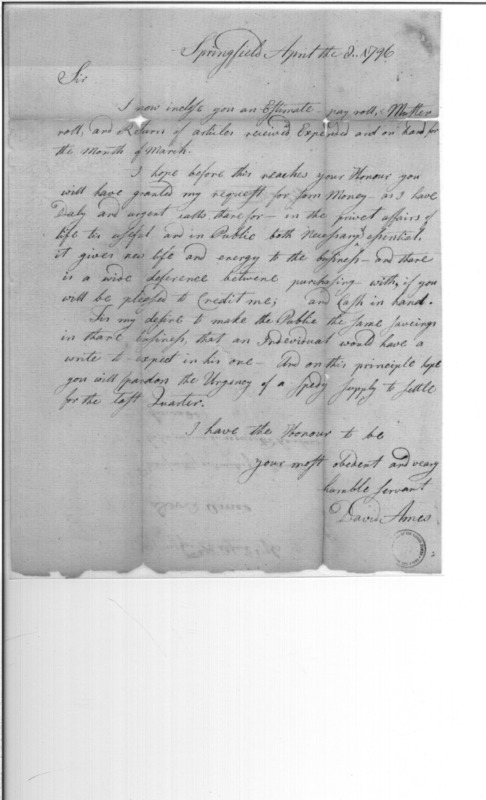 Springfield April the 3. 1796
Sir
I now inclose you an Estimate pay roll, Muster
roll, and Return of articles received Expended and on hand for
the Month of March.
I hope before this reaches your Honour you
will have granted my request for som Money - as I have
Daly and urgent calls thare for - in the privet affairs of
life tis useful and in Public both Necessary & essential.
it gives new life and energy to the business - and there
is a wide deference betwene purchasing with, if you
will be pleased to Credit me; and Cash in hand.
Tis my desire to make the Public the same saveings
in thare business, that an Individual would have a
write to expect in his one - And on this principle hope
you will pardon the Urgency of a Spedy Supply to Settle
for the last Quarter.
I have the Honour to be
your most obedent and veary
humble Servant
David Ames